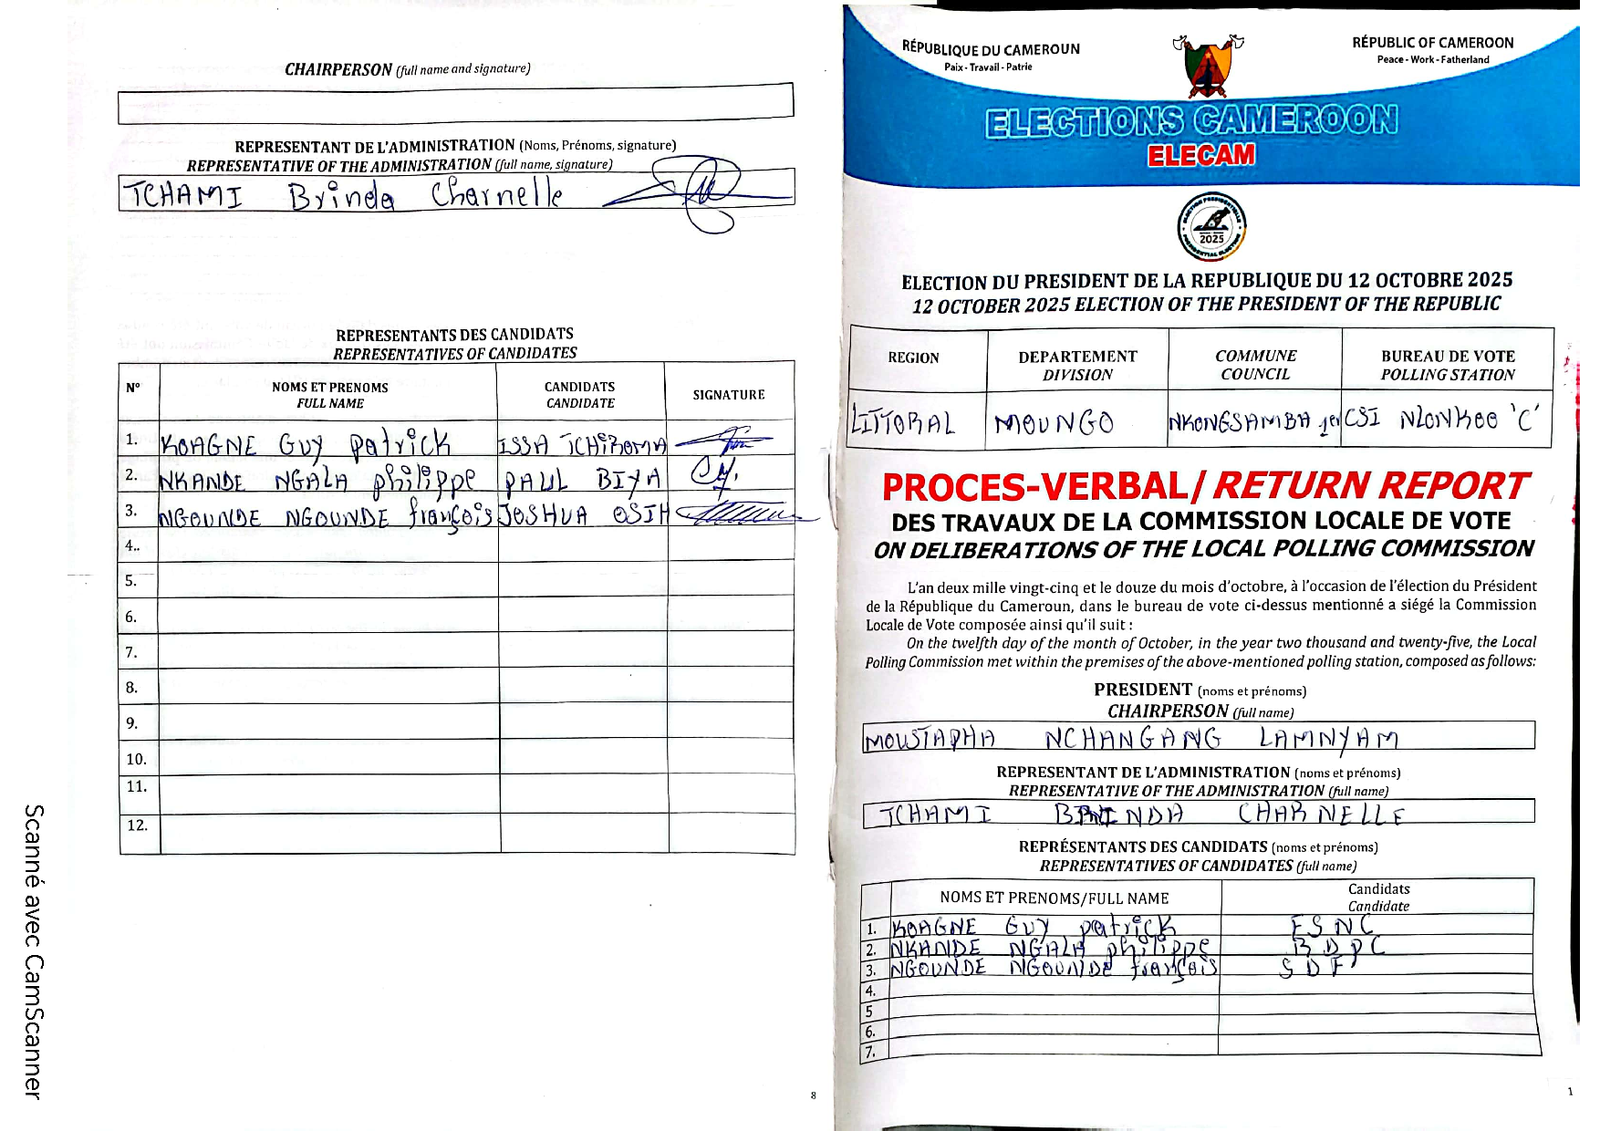 CHAIRPERSON (full name and signature)
REPRESENTANT DE L'ADMINISTRATION (Noms, Prénoms, signature)
REPRESENTATIVE OF THE ADMINISTRATION (full name, signature)
TCHAMI Brinda Charnelle
REPRESENTANTS DES CANDIDATS
REPRESENTATIVES OF CANDIDATES
N° NOMS ET PRENOMS CANDIDATS SIGNATURE
FULL NAME CANDIDATE
1. KOAGNE GUY patrick ISSA TCHIROMA
2. NKANDE NGALA philippe PAUL BIYA
3. NGOUNDE NGOUNDE françois JOSHUA OSIH
4..
5.
6.
7.
8.
9.
10.
11.
12.
8
Scanné avec CamScanner
RÉPUBLIQUE DU CAMEROUN
Paix - Travail - Patrie
RÉPUBLIC OF CAMEROON
Peace - Work - Fatherland
ELECTIONS CAMEROON
ELECAM
ELECTION PRESIDENTIELLE
2025
PRESIDENTIAL ELECTION
ELECTION DU PRESIDENT DE LA REPUBLIQUE DU 12 OCTOBRE 2025
12 OCTOBER 2025 ELECTION OF THE PRESIDENT OF THE REPUBLIC
REGION DEPARTEMENT COMMUNE BUREAU DE VOTE
DIVISION COUNCIL POLLING STATION
LITTORAL MOUNGO NKONGSAMBA 1er CSI NLONKOO 'C'
PROCES-VERBAL/ RETURN REPORT
DES TRAVAUX DE LA COMMISSION LOCALE DE VOTE
ON DELIBERATIONS OF THE LOCAL POLLING COMMISSION
L'an deux mille vingt-cinq et le douze du mois d'octobre, à l'occasion de l'élection du Président
de la République du Cameroun, dans le bureau de vote ci-dessus mentionné a siégé la Commission
Locale de Vote composée ainsi qu'il suit :
On the twelfth day of the month of October, in the year two thousand and twenty-five, the Local
Polling Commission met within the premises of the above-mentioned polling station, composed as follows:
PRESIDENT (noms et prénoms)
CHAIRPERSON (full name)
MOUSTAPHA NCHANGANG LAMNYAM
REPRESENTANT DE L'ADMINISTRATION (noms et prénoms)
REPRESENTATIVE OF THE ADMINISTRATION (full name)
TCHAMI BRINDA CHARNELLE
REPRÉSENTANTS DES CANDIDATS (noms et prénoms)
REPRESENTATIVES OF CANDIDATES (full name)
NOMS ET PRENOMS/FULL NAME Candidats
Candidate
1. KOAGNE GUY patrick FSNC
2. NKANDE NGALA philippe BDPC
3. NGOUNDE NGOUNDE françois SDF
4.
5
6.
7.
1